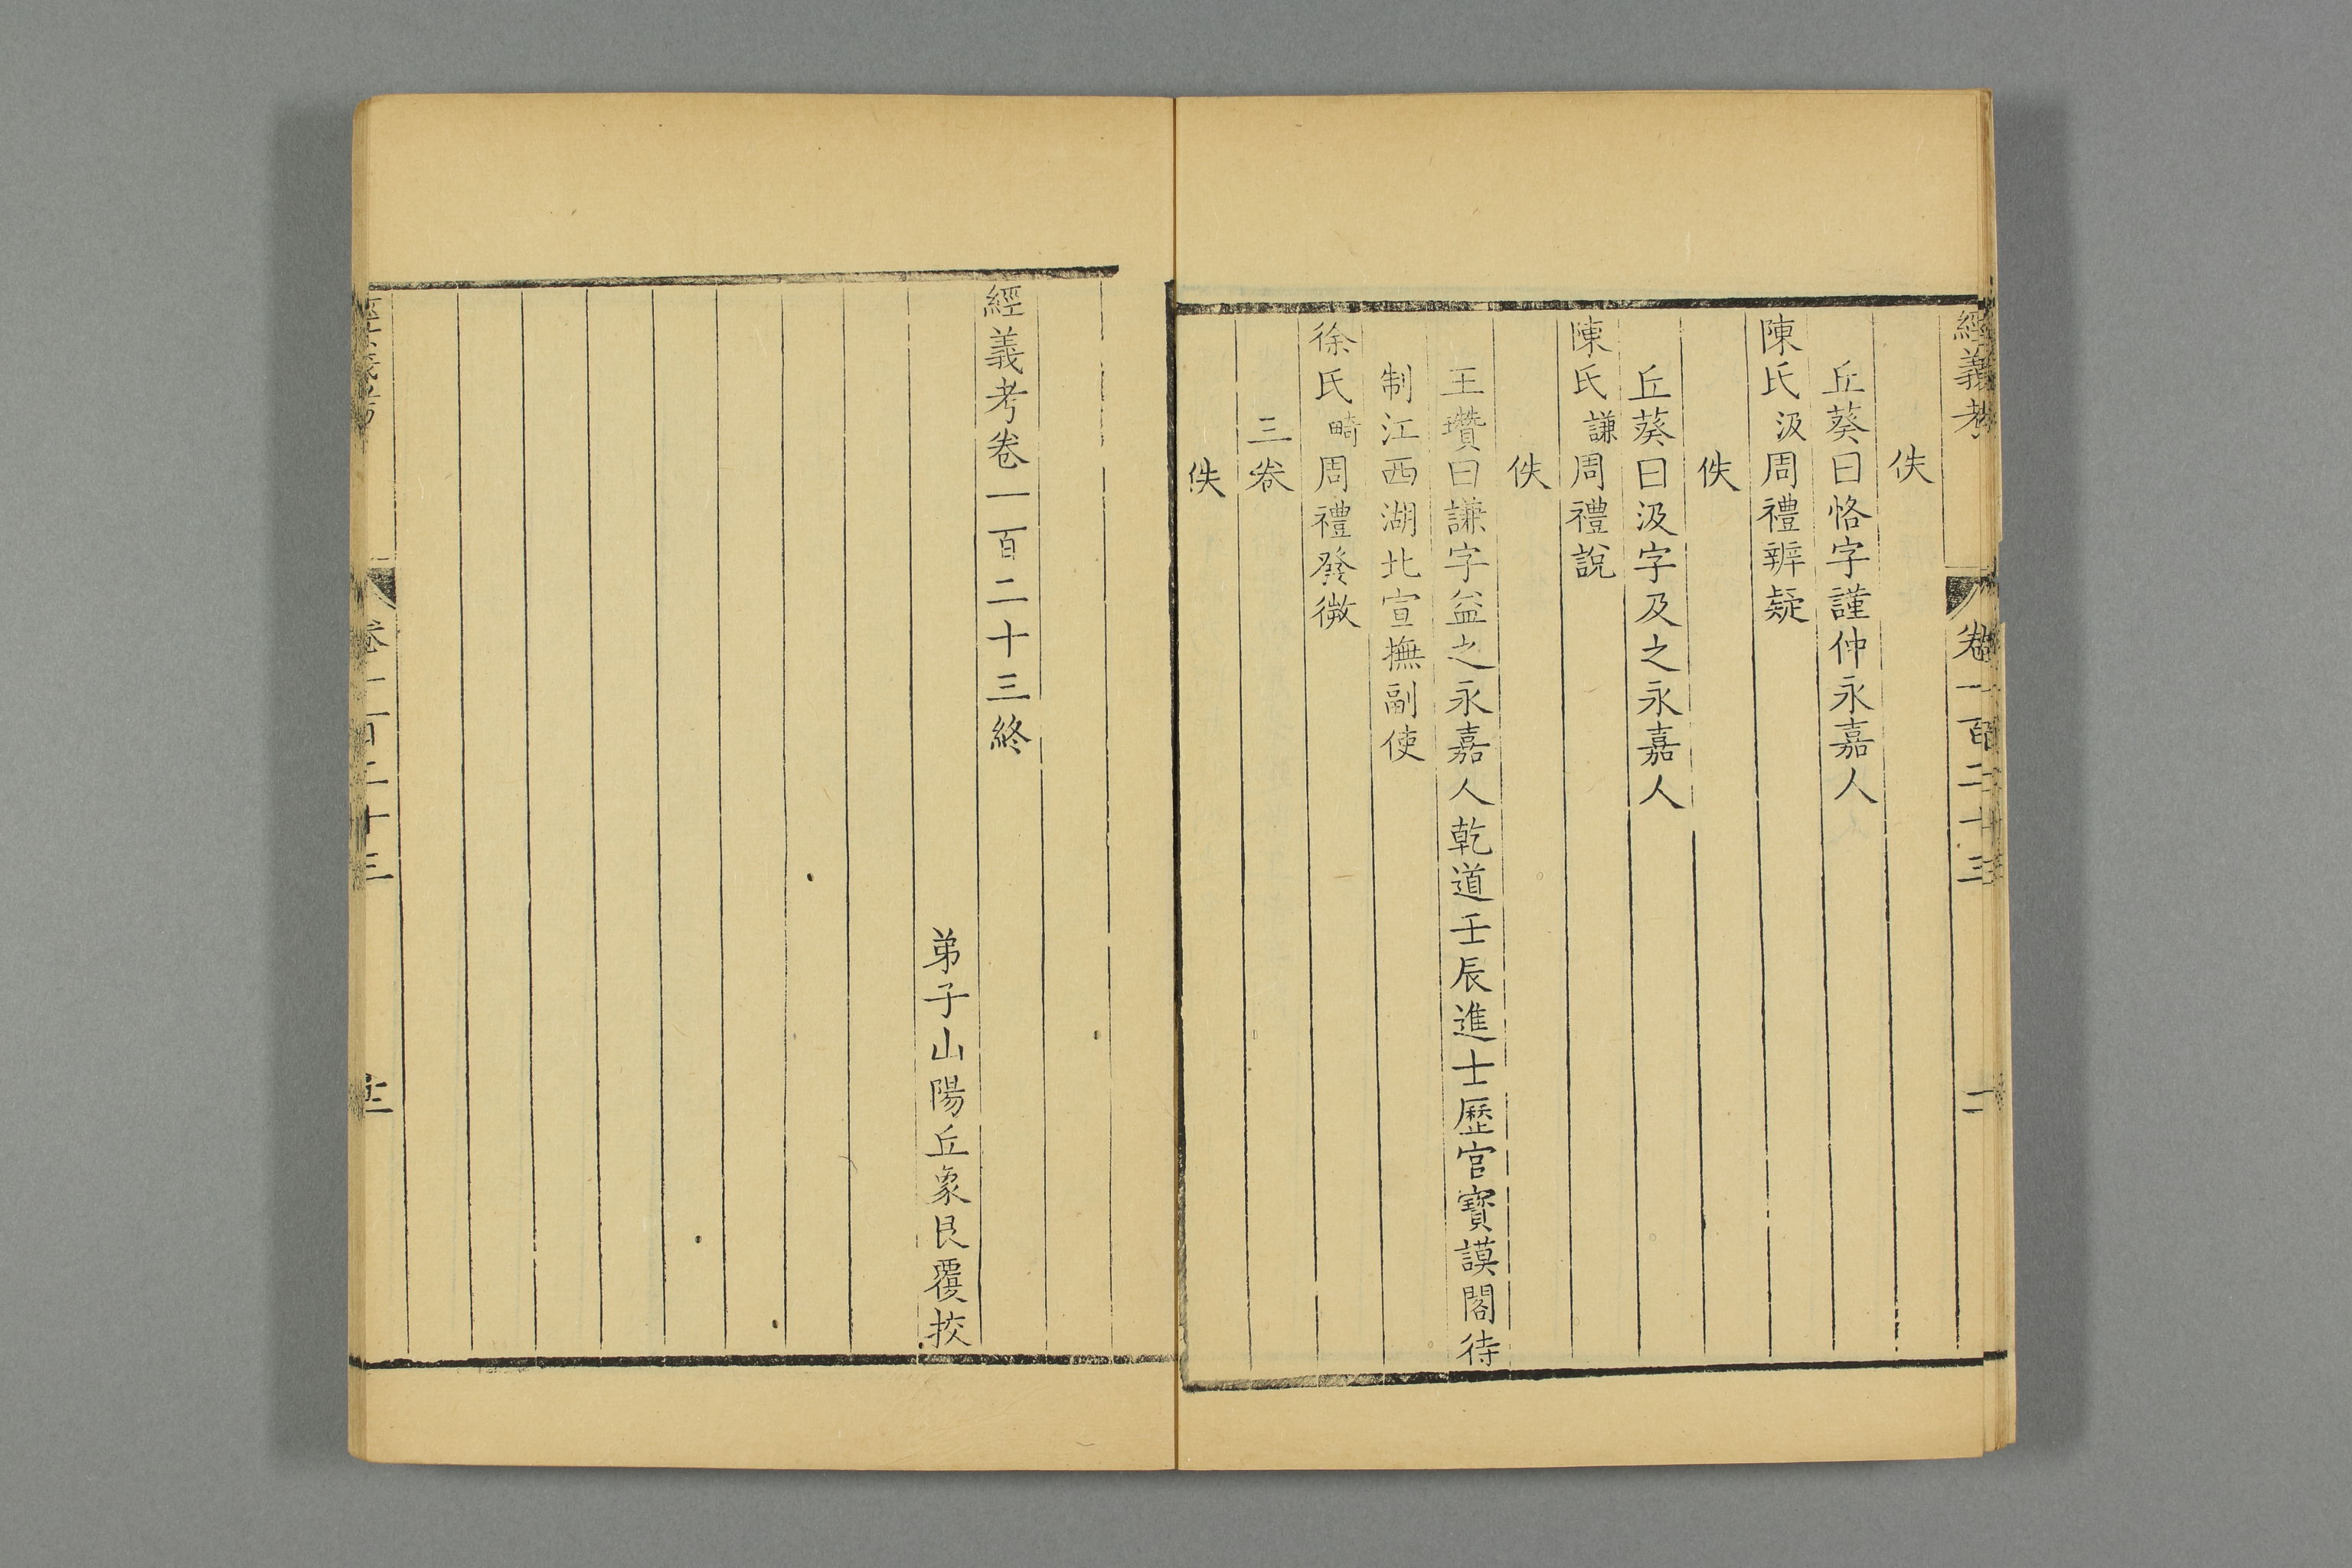 經義考
卷一百二十三
佚
丘葵曰恪字謹仲永嘉人
陳氏汲周禮辨疑
佚
丘葵曰汲字及之永嘉人
陳氏謙周禮說
佚
王瓚曰謙字益之永嘉人乾道壬辰進士歷官寶謨閣待
制江西湖北宣撫副使
徐氏畸周禮發微
三卷
佚
經義考卷一百二十三終
弟子山陽丘象艮覆挍
經義考
卷一百二十三